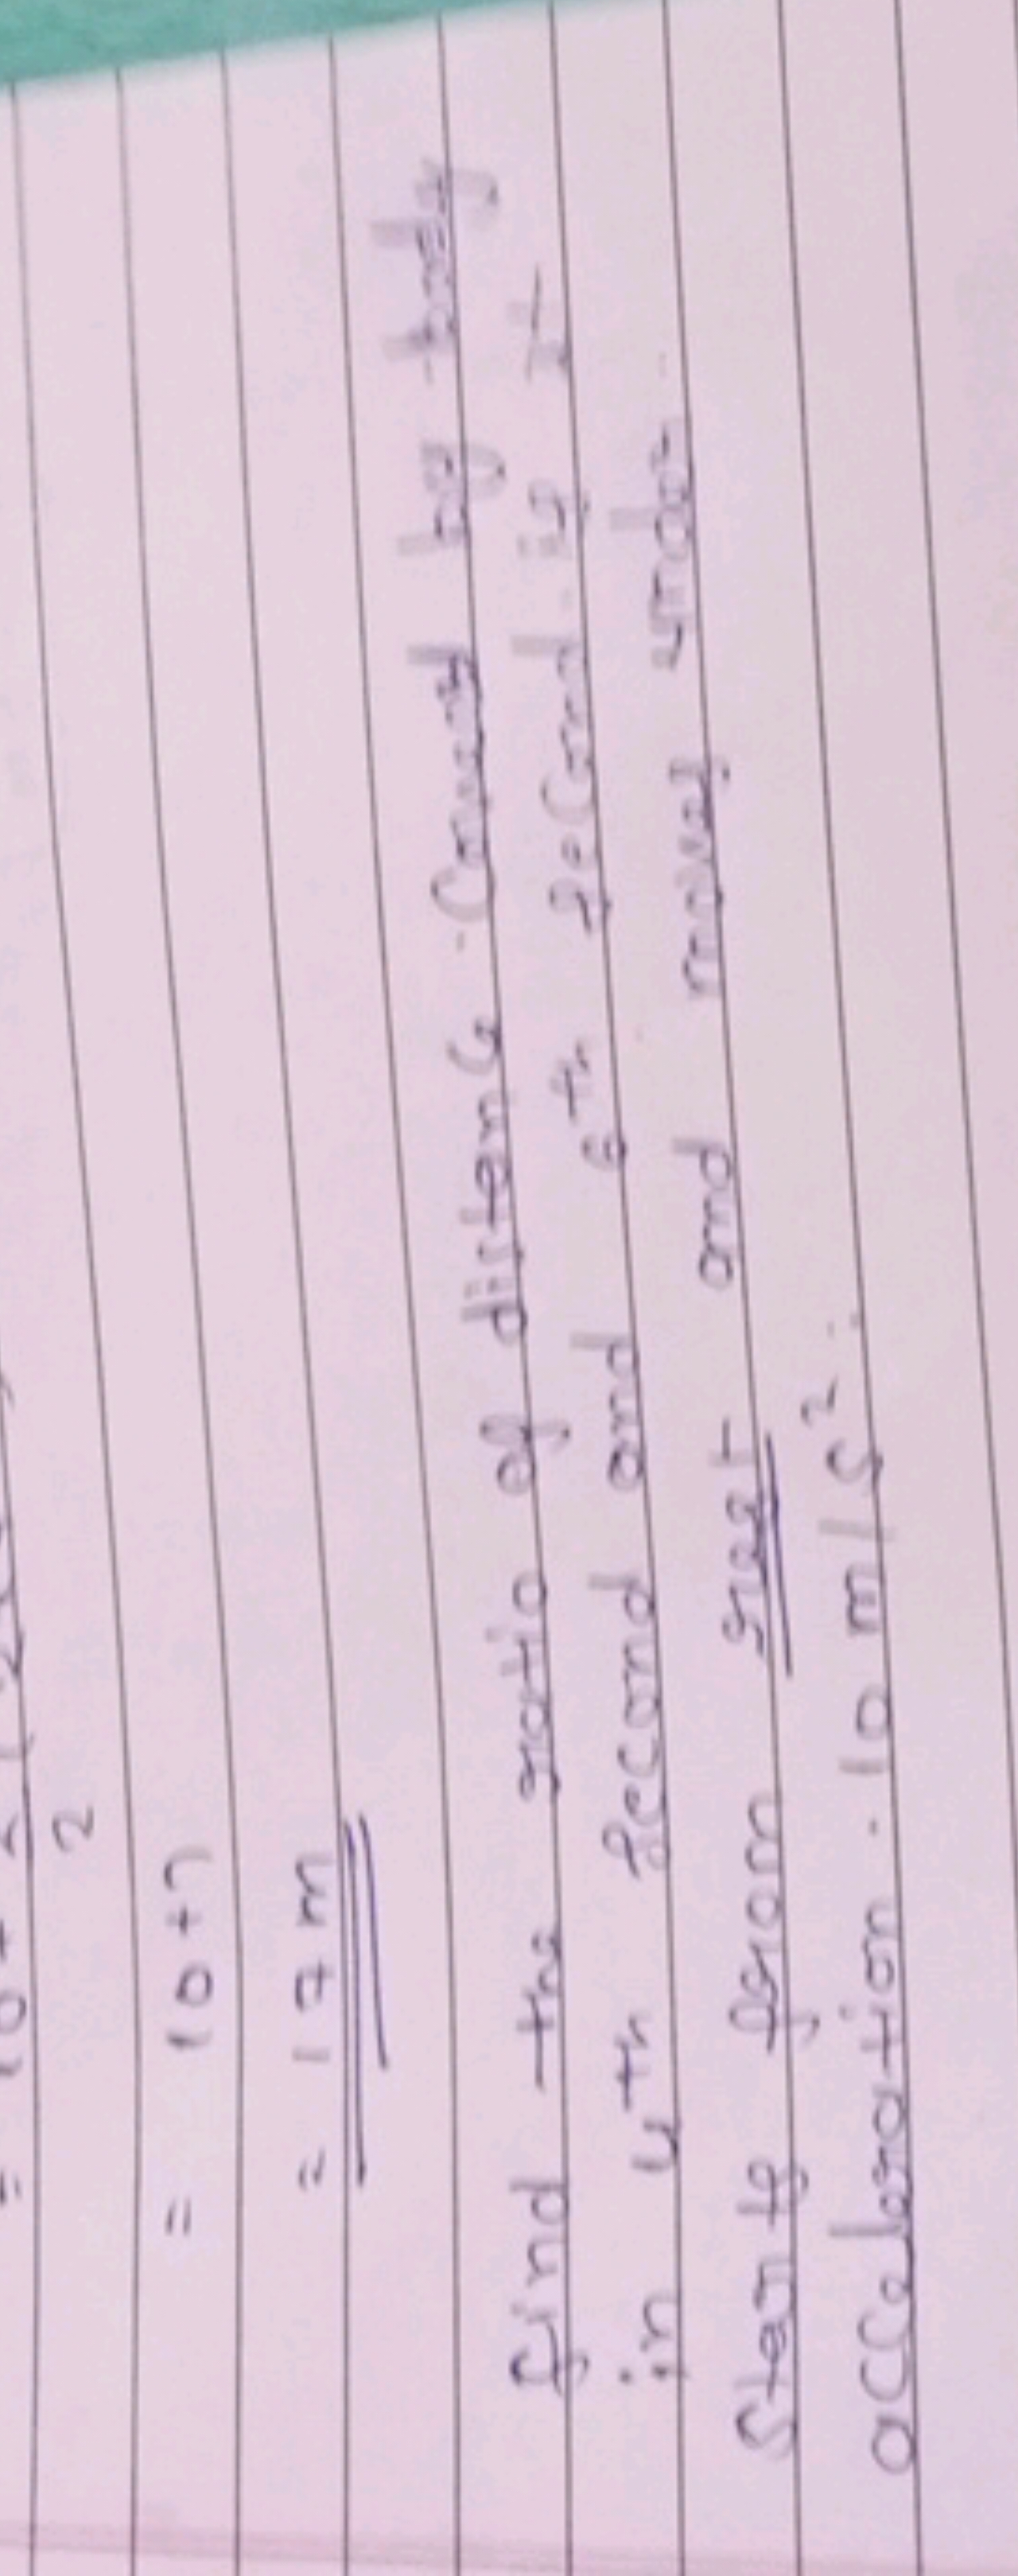 2
= 10+7
= 17m
find the ratio of distence Covered by body
in 4th second and 6th second if it
Starts from rest and moves under
acceleration. 10 m/s²